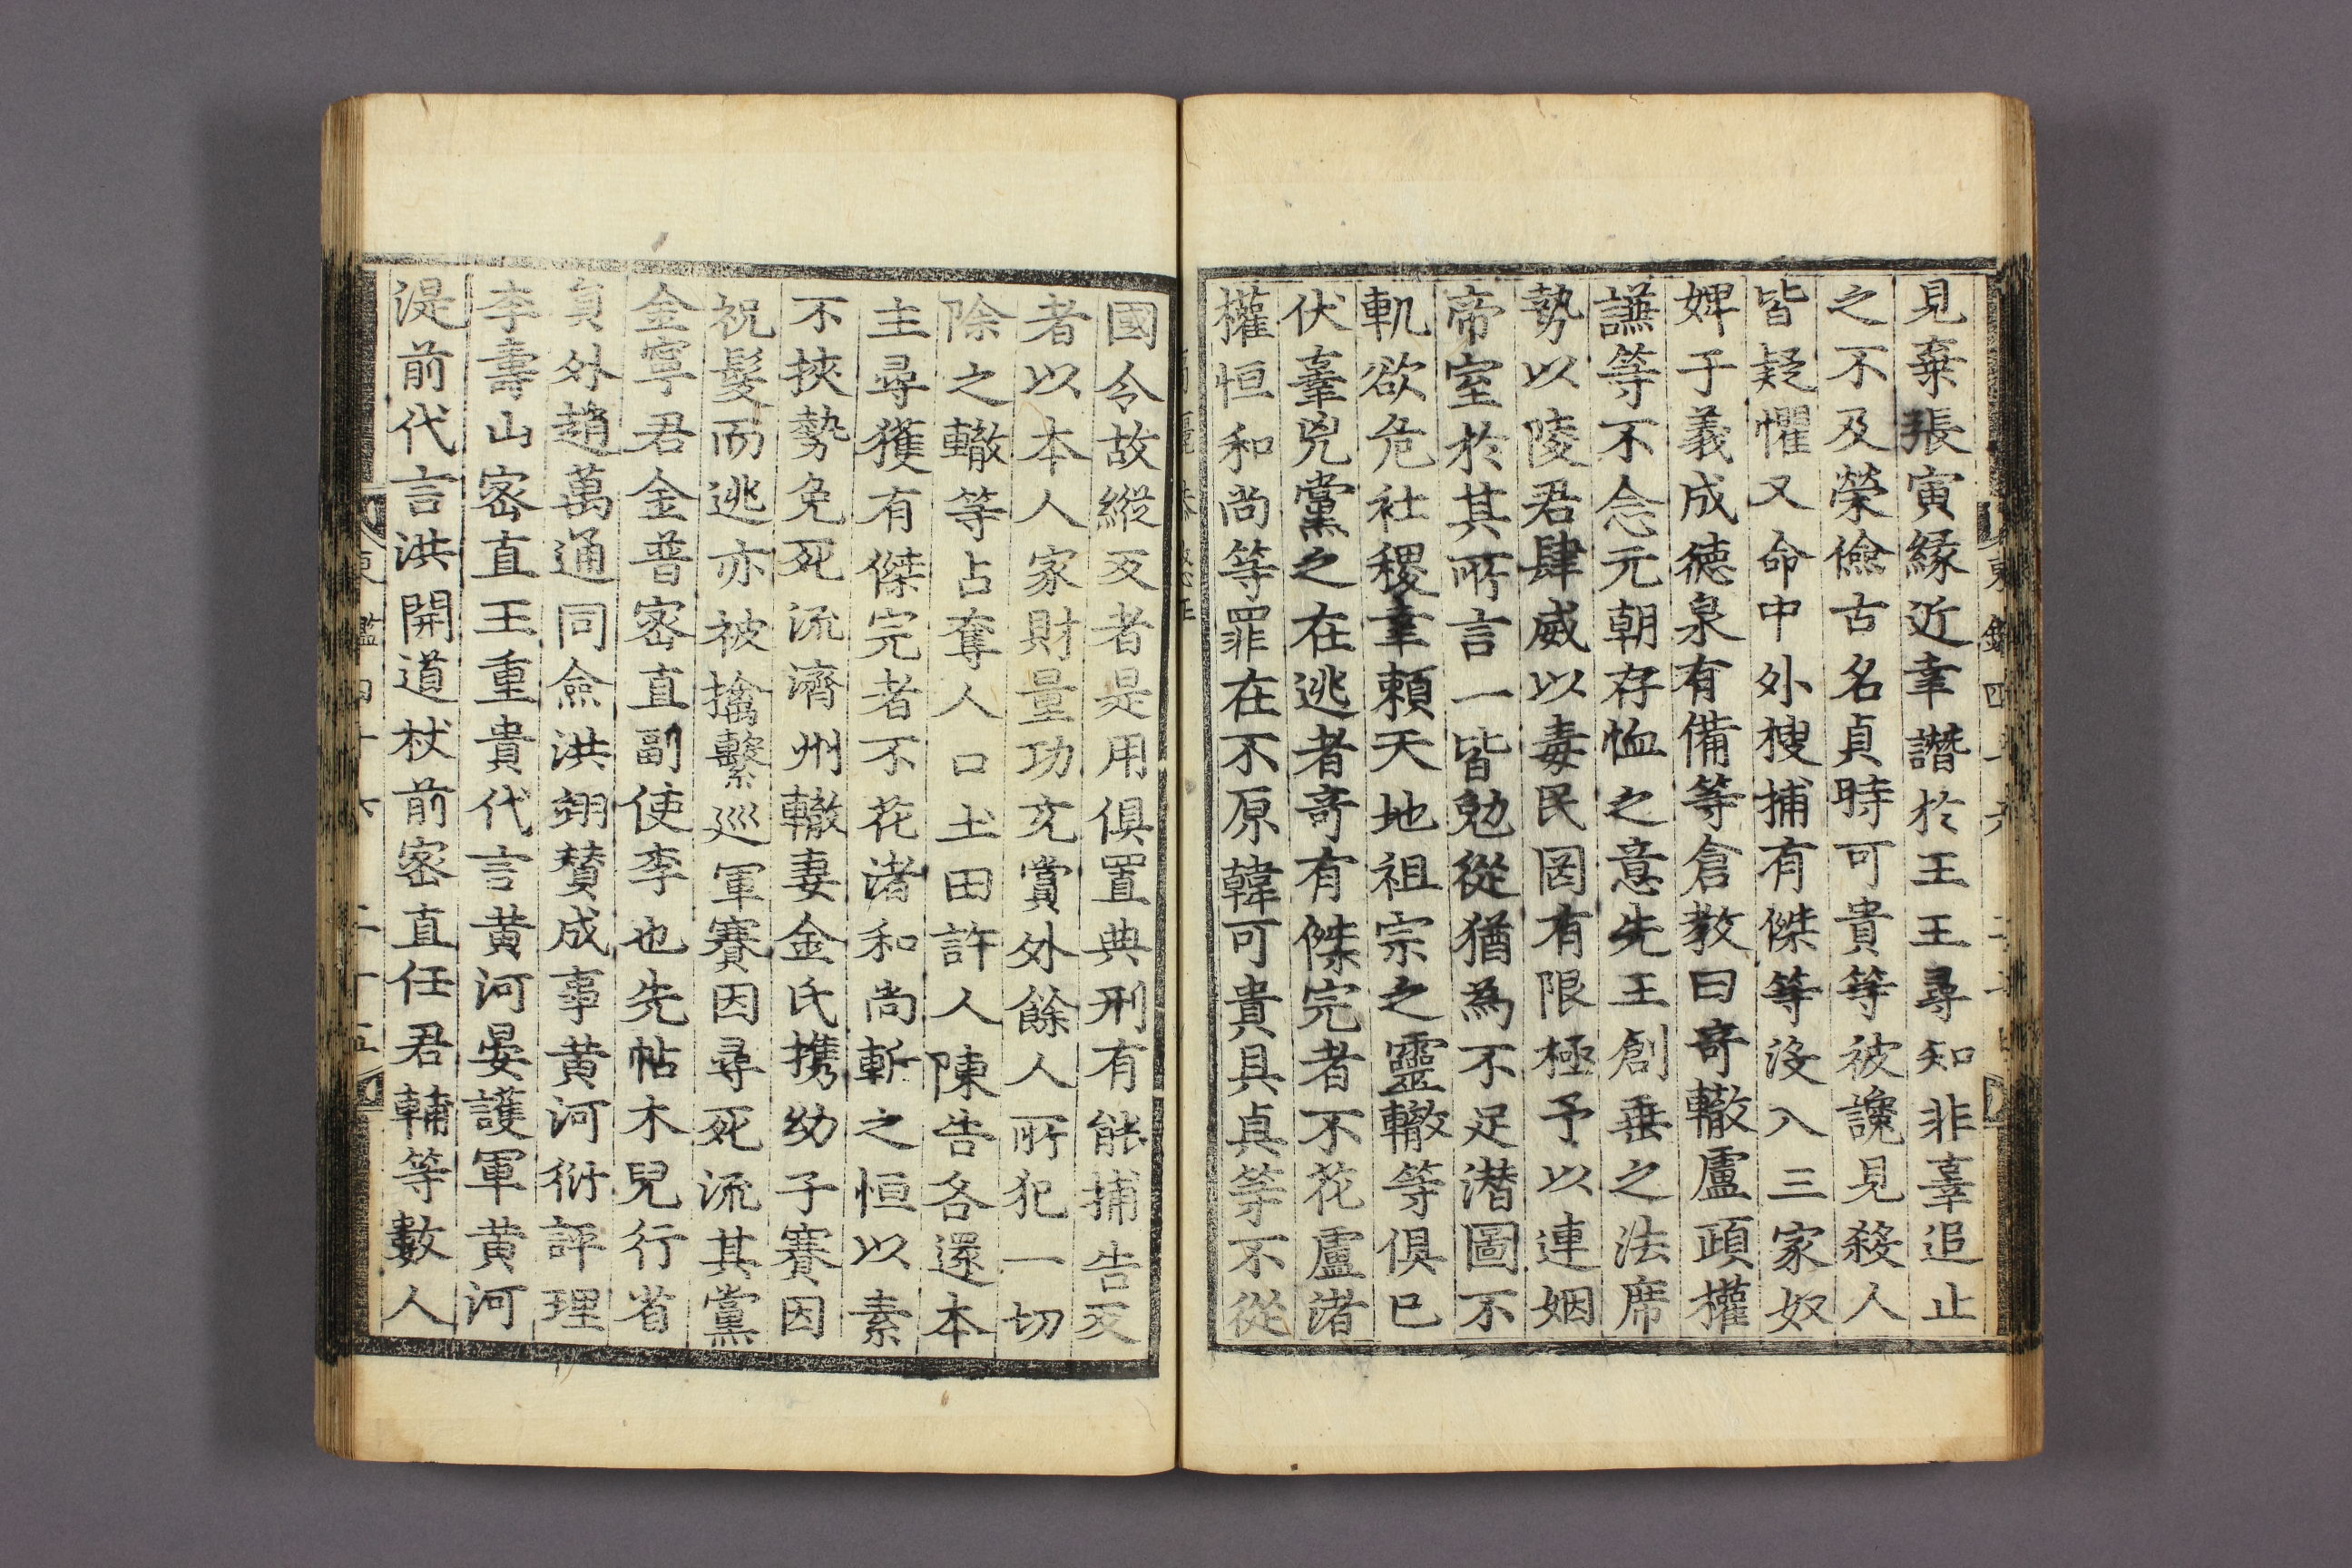 見棄張寅緣近幸譖於王王尋知非辜追止
之不及榮儉古名貞時可貴等被讒見殺人
皆疑懼又命中外搜捕有傑等沒入三家奴
婢于義成德泉有備等倉教曰竒轍盧頙權
謙等不念元朝存恤之意先王創垂之法席
勢以陵君肆威以毒民罔有限極予以連姻
帝室於其所言一皆勉從猶為不足潛圖不
軌欲危社稷幸賴天地祖宗之靈轍等俱已
伏辜兇黨之在逃者竒有傑完者不花盧渚
權恒和尚等罪在不原韓可貴具貞等不從
國令故縱反者是用俱置典刑有能捕告反
者以本人家財量功充賞外餘人所犯一切
除之轍等占奪人口土田許人陳告各還本
主尋獲有傑完者不花渚和尚斬之恒以素
不挾勢免死流濟州轍妻金氏携幼子賽因
祝髮而逃亦被擒繫巡軍賽因尋死流其黨
金寧君金普密直副使李也先帖木兒行省
員外趙萬通同僉洪翊贊成事黃河衍評理
李壽山密直王重貴代言黃河晏護軍黃河
湜前代言洪開道杖前密直任君輔等數人
東鑑四十六
東鑑四十六 二十五